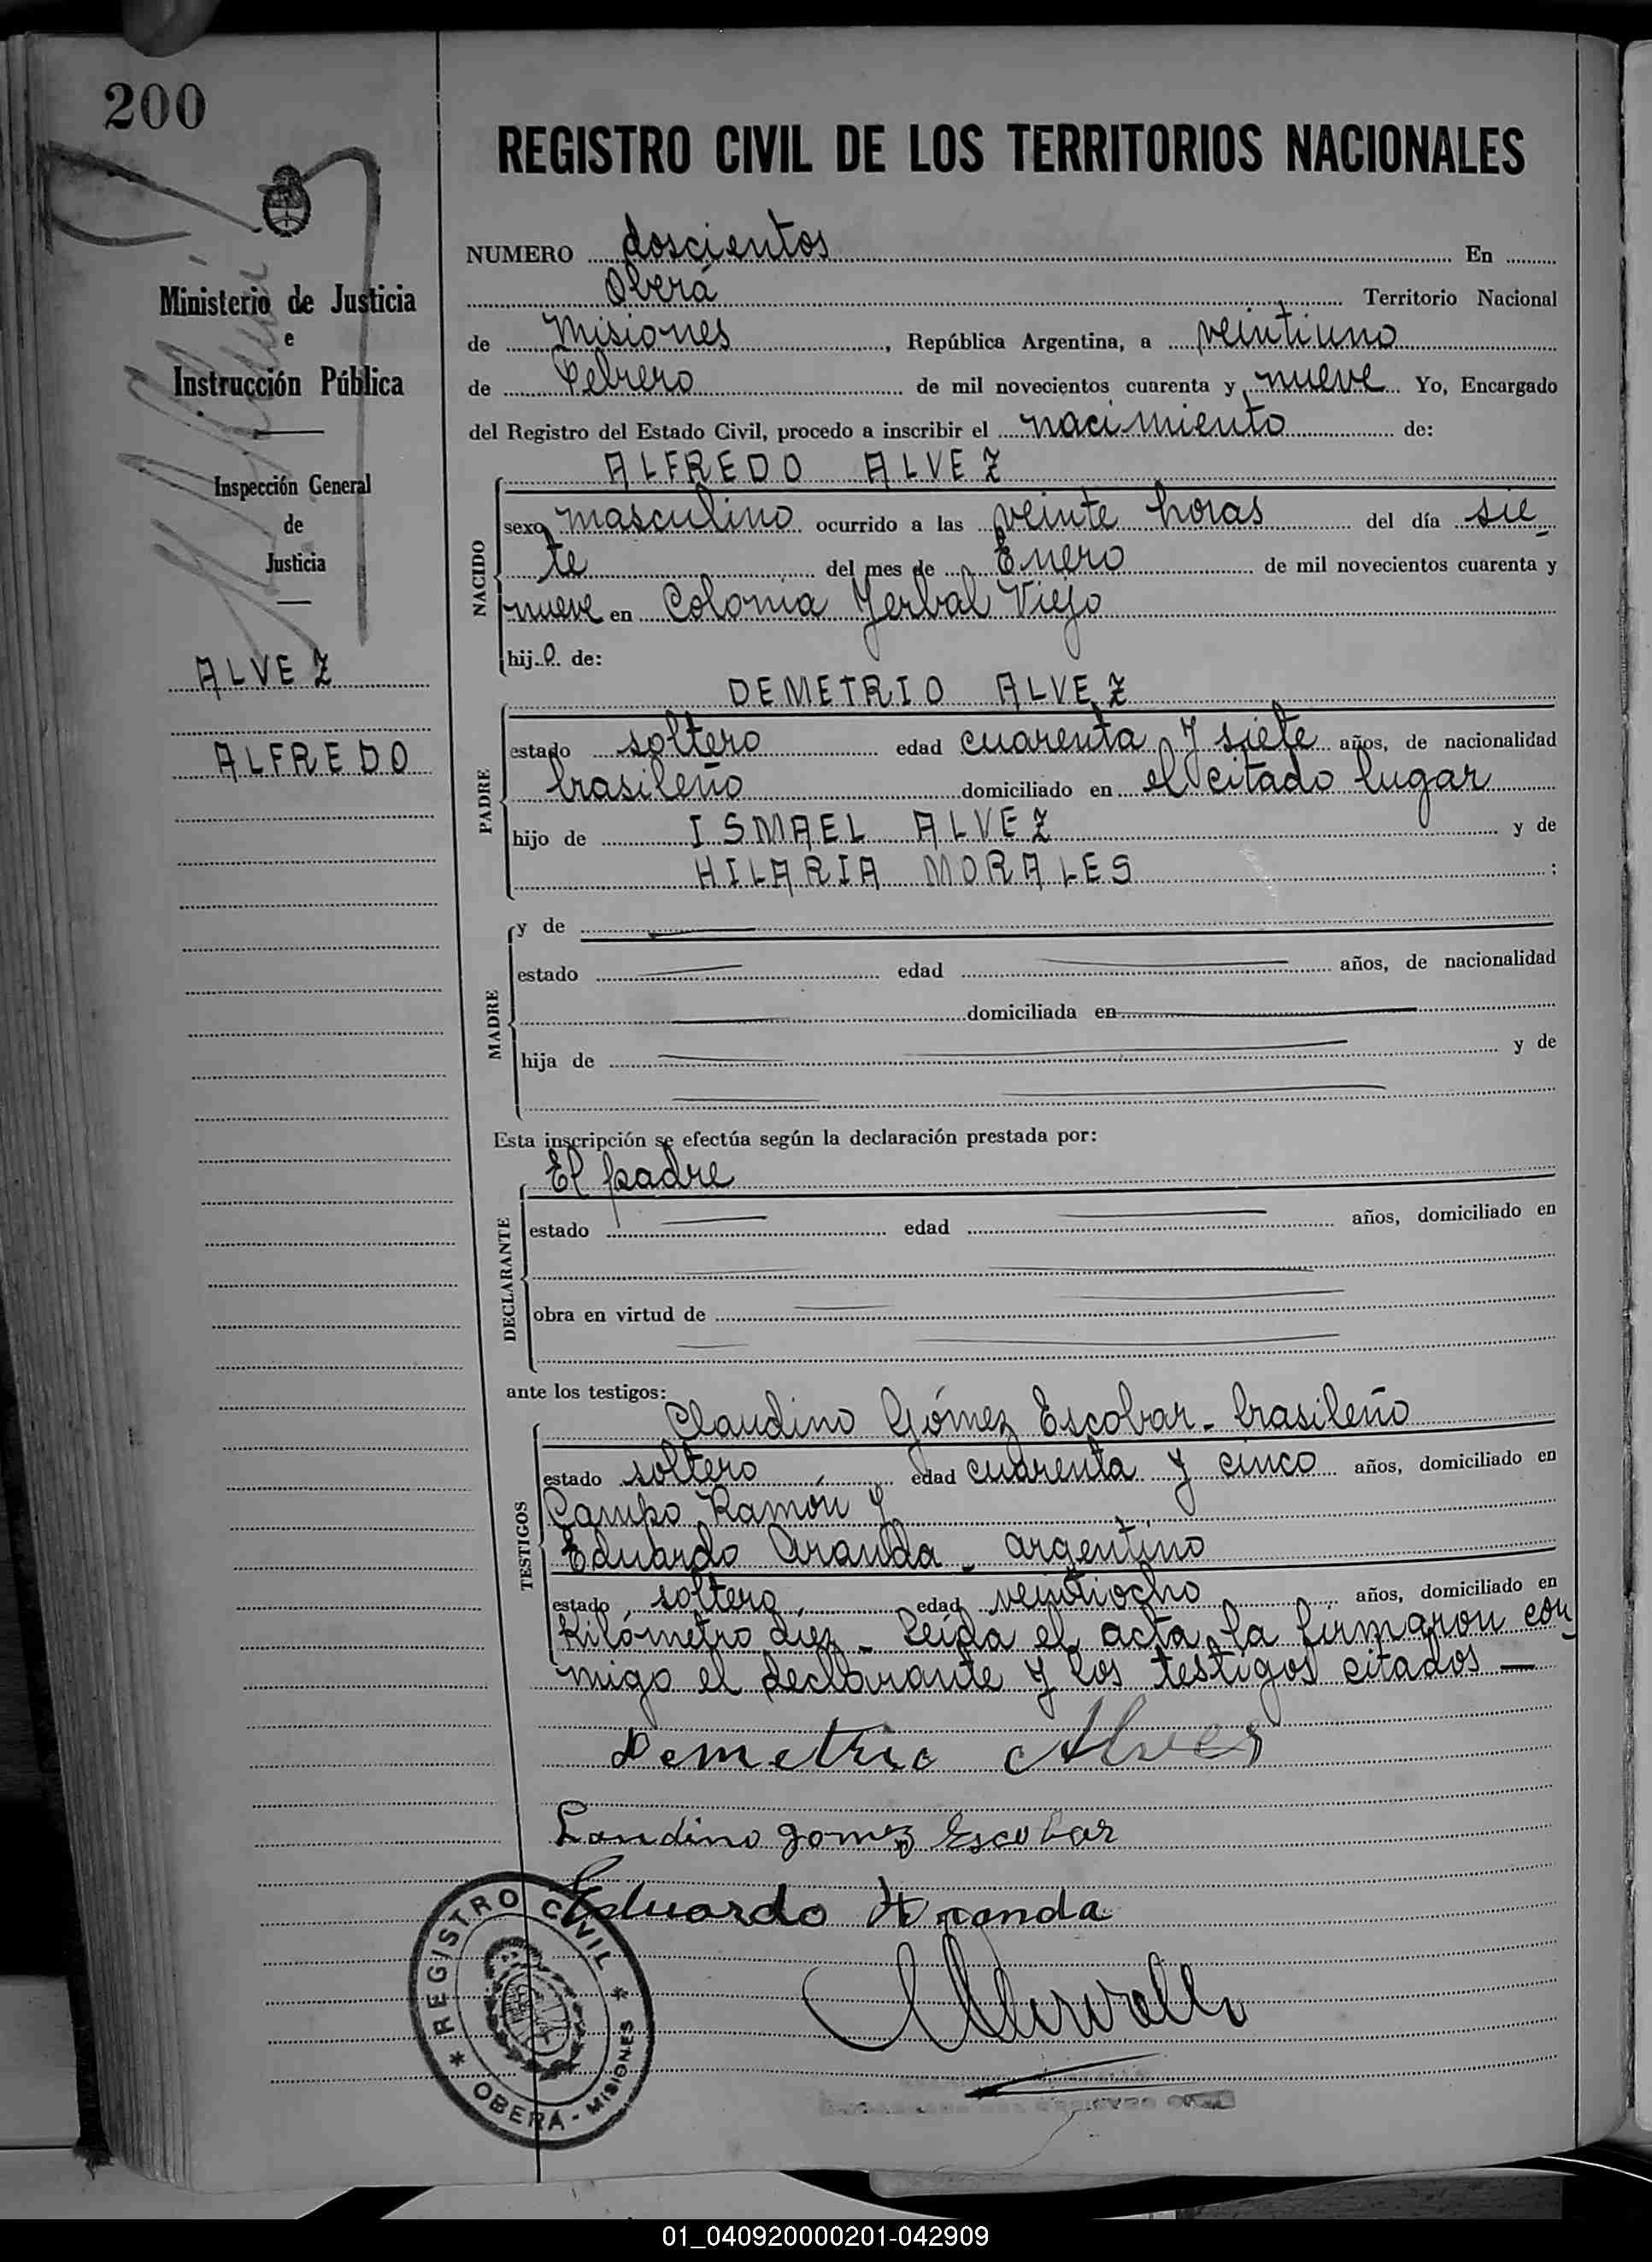 200
REGISTRO CIVIL DE LOS TERRITORIOS NACIONALES
Ministerio de Justicia
e
Instrucción Pública
Inspección General
de
Justicia
ALVEZ
ALFREDO
NUMERO doscientos En
Oberá Territorio Nacional
de Misiones, República Argentina, a veintiuno
de Febrero de mil novecientos cuarenta y nueve Yo, Encargado
del Registro del Estado Civil, procedo a inscribir el nacimiento de:
NACIDO
ALFREDO ALVEZ
sexo masculino ocurrido a las veinte horas del día sie-
te del mes de Enero de mil novecientos cuarenta y
nueve en Colonia Yerbal Viejo
hijo de:
PADRE
DEMETRIO ALVEZ
estado soltero edad cuarenta y siete años, de nacionalidad
brasileño domiciliado en el citado lugar
hijo de ISMAEL ALVEZ y de
HILARIA MORALES ;
MADRE
y de
estado edad años, de nacionalidad
domiciliada en
hija de y de
Esta inscripción se efectúa según la declaración prestada por:
DECLARANTE
El padre
estado edad años, domiciliado en
obra en virtud de
ante los testigos:
TESTIGOS
Claudino Gómez Escobar - brasileño
estado soltero edad cuarenta y cinco años, domiciliado en
Campo Ramón y
Eduardo Aranda - argentino
estado soltero edad veintiocho años, domiciliado en
Kilómetro diez - Leída el acta la firmaron con-
migo el declarante y los testigos citados —
Demetrio Alves
Laudino gomez Escobar
Eduardo Aranda
REGISTRO CIVIL
OBERÁ - MISIONES
01_040920000201-042909